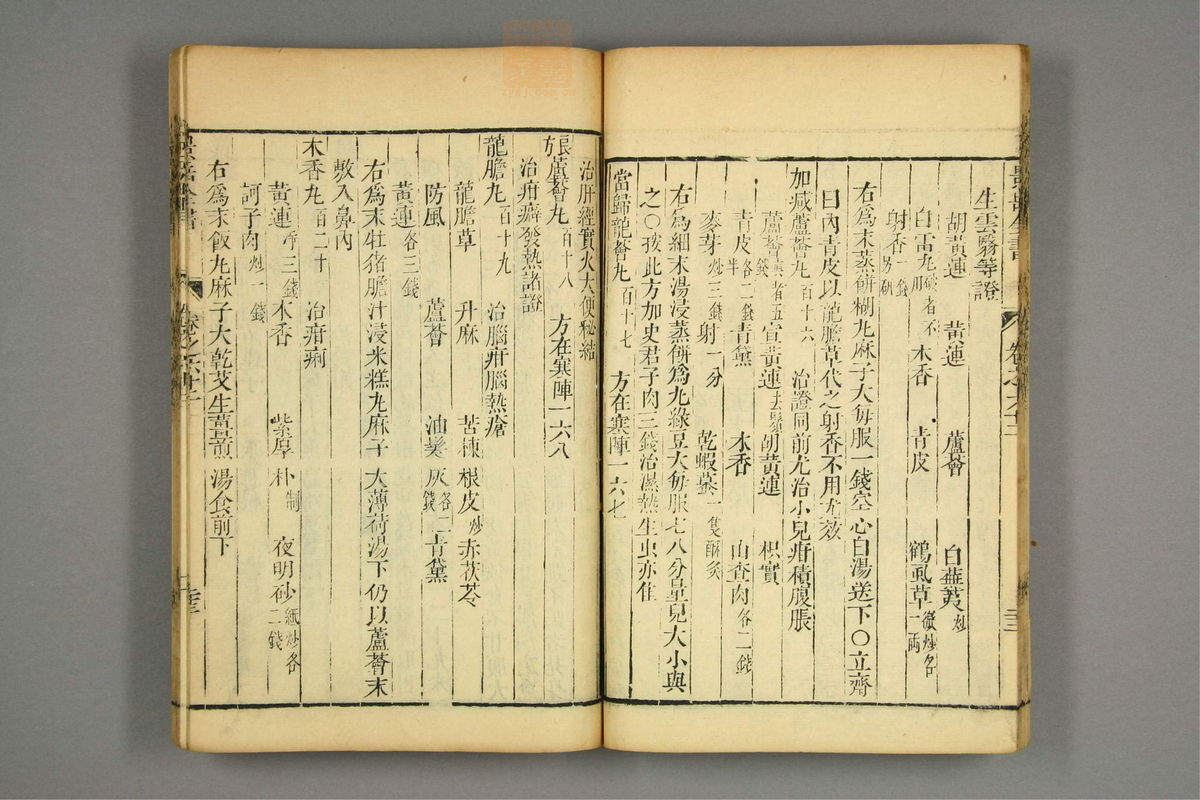 生雲翳等證
胡黃連 黃連 蘆薈 白蕪荑炒
白雷丸破者不用 木香 青皮 鶴虱草微炒各一兩
射香一錢另研
右爲末蒸餅糊丸麻子大每服一錢空心白湯送下○立齋
曰內青皮以龍膽草代之射香不用尤效
加減蘆薈丸百十六 治證同前尤治小兒疳積腹脹
蘆薈眞者五錢 宣黃連去鬚 胡黃連 枳實
青皮各二錢半 青黛 木香 山查肉各二錢
麥芽炒三錢 射一分 乾蝦蟇一隻酥炙
右爲細末湯浸蒸餅爲丸綠豆大每服七八分量兒大小與
之○孩此方加史君子肉三錢治濕熱生虫亦佳
當歸龍薈丸百十七 方在寒陣一六七
治肝經實火大便秘結
良方蘆薈丸百十八 方在寒陣一六八
治疳癖發熱諸證
龍膽丸百十九 治腦疳腦熱瘡
龍膽草 升麻 苦楝根皮炒 赤茯苓
防風 蘆薈 油髮灰各二錢 青黛
黃連各三錢
右爲末牡猪膽汁浸米糕丸麻子大薄荷湯下仍以蘆薈末
敷入鼻內
木香丸百二十 治疳痢
黃連淨三錢 木香 紫厚朴制 夜明砂紙炒各二錢
訶子肉炒一錢
右爲末飯丸麻子大乾艾生薑煎湯食前下